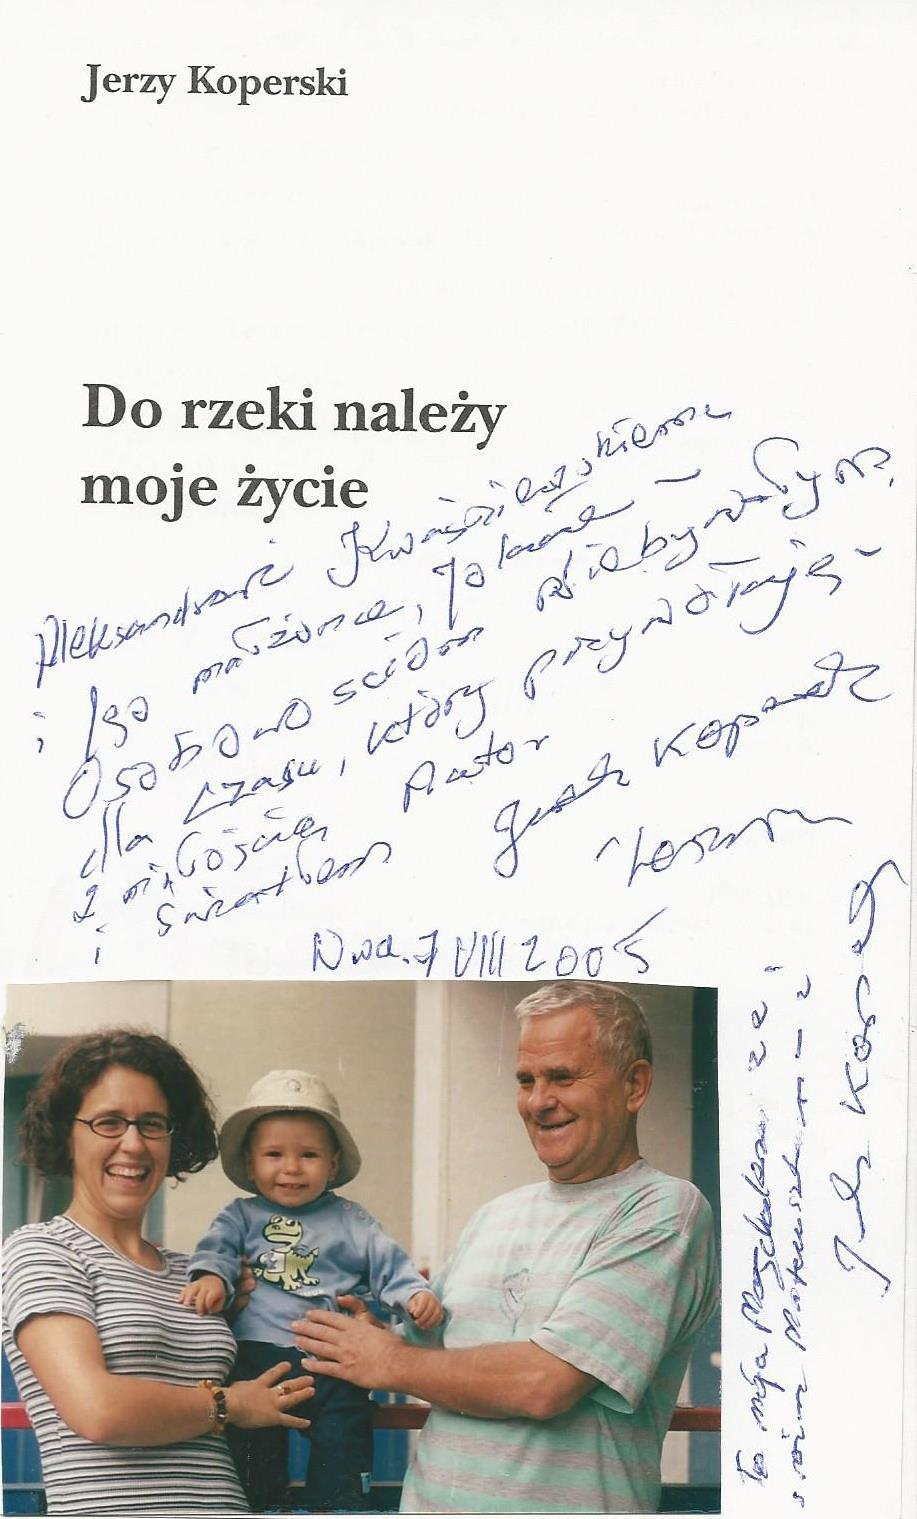 Jerzy Koperski
Do rzeki należy
moje życie
Aleksandrowi Kwaśniewskiemu
i Jego małżonce, Jolancie –
Osobowościom niebywałym
dla czasu, który przywołuję –
z miłością Autor
i światłem
Jurek Koperski
7 VIII 2005
To moja Magdalena ze
swoim Mateuszkiem – i
Jurek Koperski